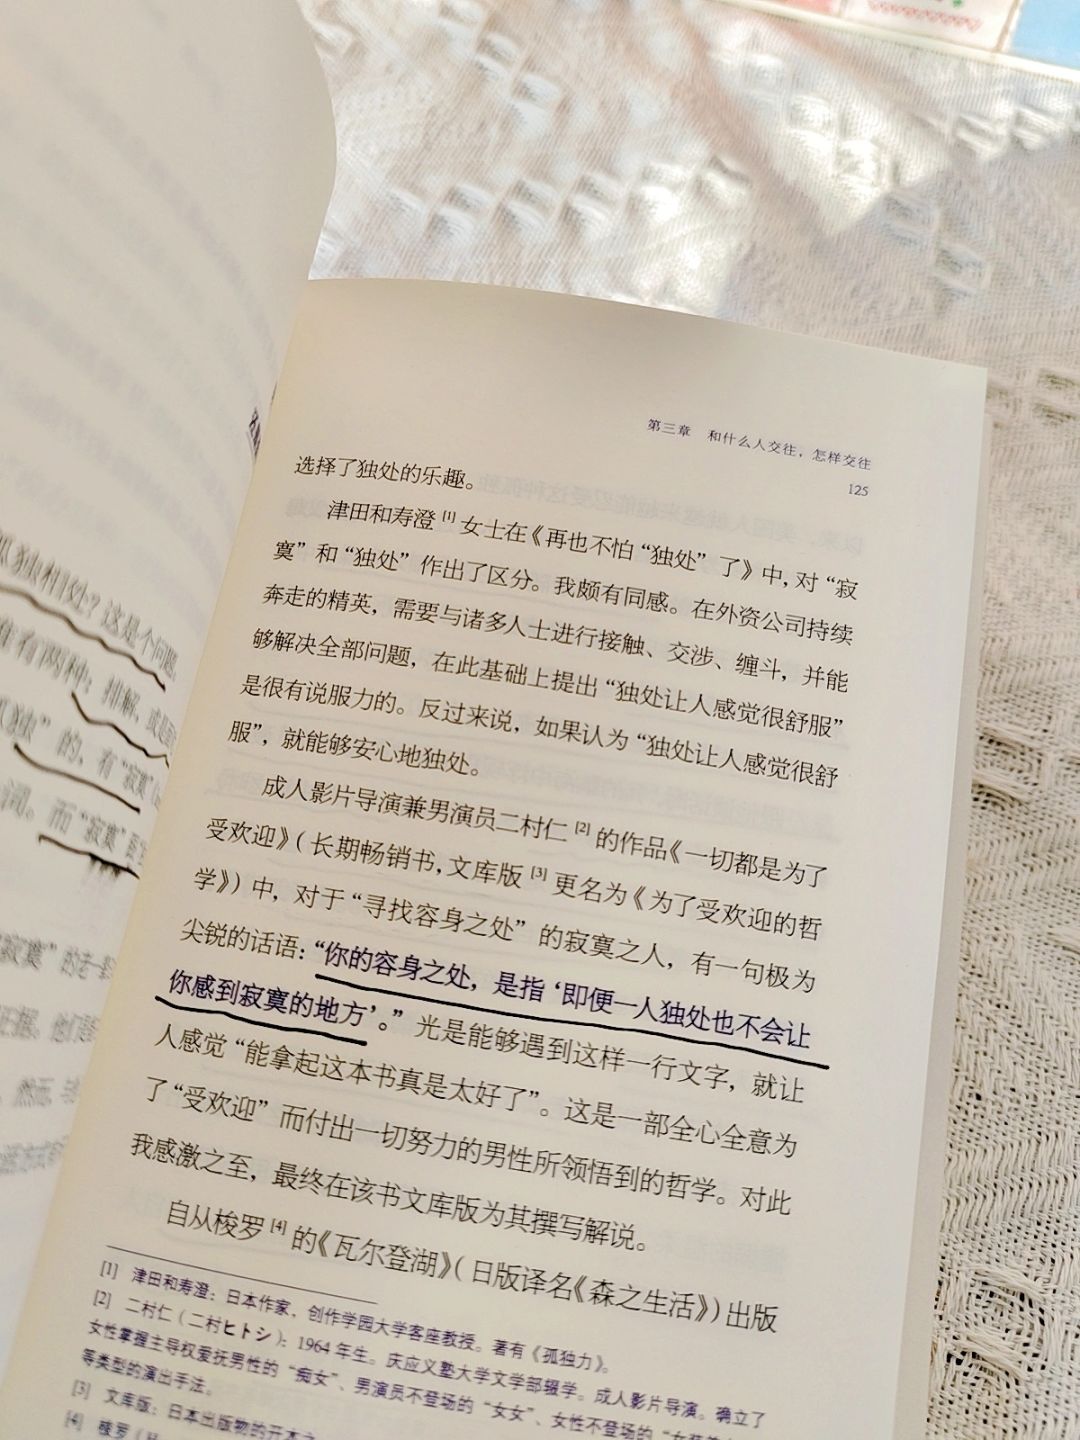 孤独相处？这是个问题。
有两种：排解，或是
”的，有“寂寞”
词。而“寂寞”
寂寞”的老
证据，他们
。然而，
第三章 和什么人交往，怎样交往
125
选择了独处的乐趣。
津田和寿澄[1]女士在《再也不怕“独处”了》中，对“寂
寞”和“独处”作出了区分。我颇有同感。在外资公司持续
奔走的精英，需要与诸多人士进行接触、交涉、缠斗，并能
够解决全部问题，在此基础上提出“独处让人感觉很舒服”
是很有说服力的。反过来说，如果认为“独处让人感觉很舒
服”，就能够安心地独处。
成人影片导演兼男演员二村仁[2]的作品《一切都是为了
受欢迎》（长期畅销书，文库版[3]更名为《为了受欢迎的哲
学》）中，对于“寻找容身之处”的寂寞之人，有一句极为
尖锐的话语：“你的容身之处，是指‘即便一人独处也不会让
你感到寂寞的地方’。”光是能够遇到这样一行文字，就让
人感觉“能拿起这本书真是太好了”。这是一部全心全意为
了“受欢迎”而付出一切努力的男性所领悟到的哲学。对此
我感激之至，最终在该书文库版为其撰写解说。
自从梭罗[4]的《瓦尔登湖》（日版译名《森之生活》）出版
[1] 津田和寿澄：日本作家，创作学园大学客座教授。著有《孤独力》。
[2] 二村仁（二村ヒトシ）：1964年生。庆应义塾大学文学部辍学。成人影片导演。确立了
女性掌握主导权爱抚男性的“痴女”、男演员不登场的“女女”、女性不登场的“女装
等类型的演出手法。
[3] 文库版：日本出版物的开本之
[4] 梭罗（